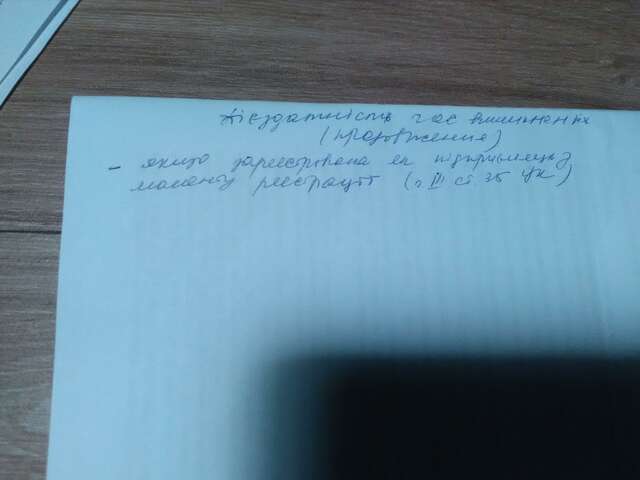 Дієздатність час вишинених
(продовження)
- якщо зареєстрована як підприємець з
моменту реєстрації (п III ст. 35 ЦК)